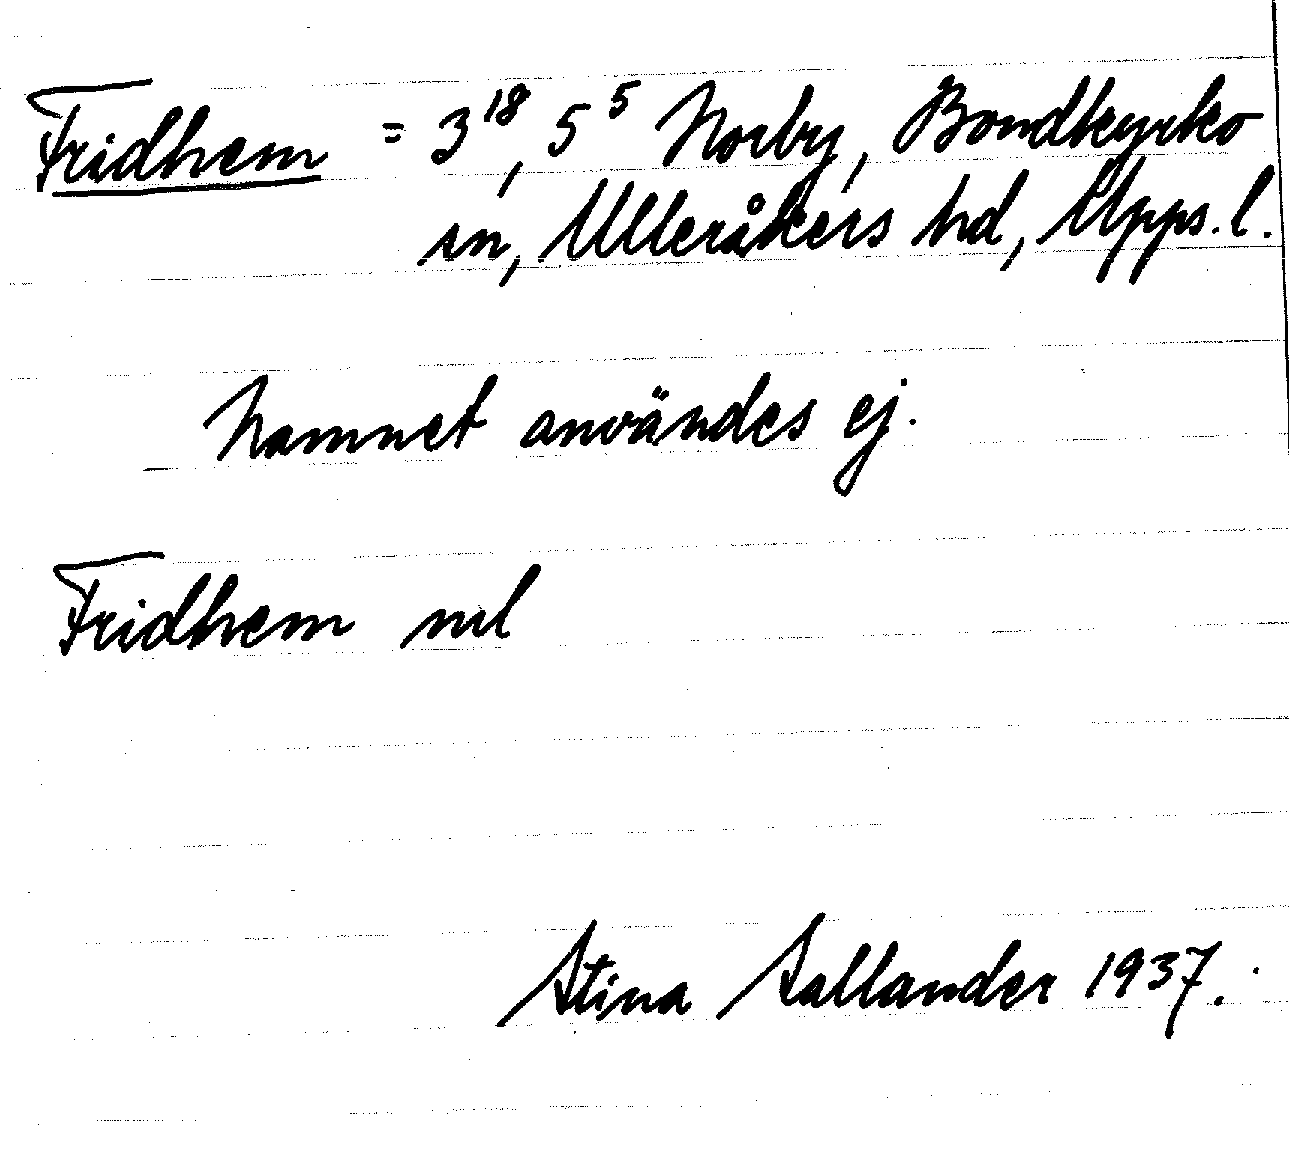 Fridhem = 3¹⁸, 5⁵ Norby, Bondkyrko
sn, Ulleråkers hd, Upps. l.
Namnet användes ej.
Fridhem
Stina Sallander 1937.